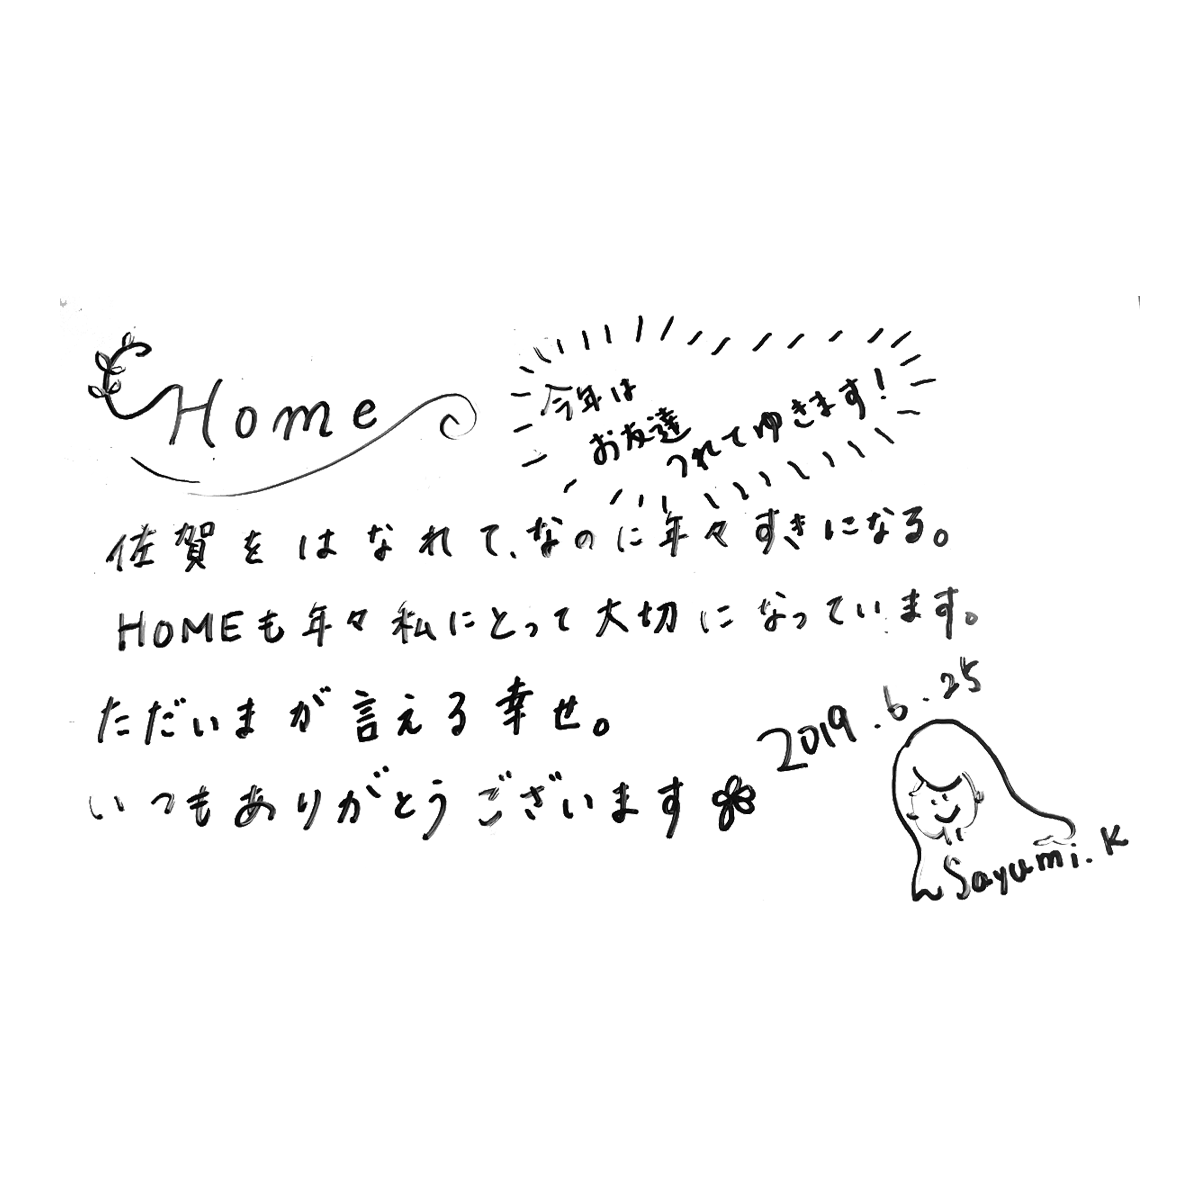 Home
今年は
お友達
つれてゆきます!
佐賀をはなれて、なのに年々すきになる。
HOMEも年々私にとって大切になっています。
ただいまが言える幸せ。
いつもありがとうございます
2019.6.25
Sayumi.K